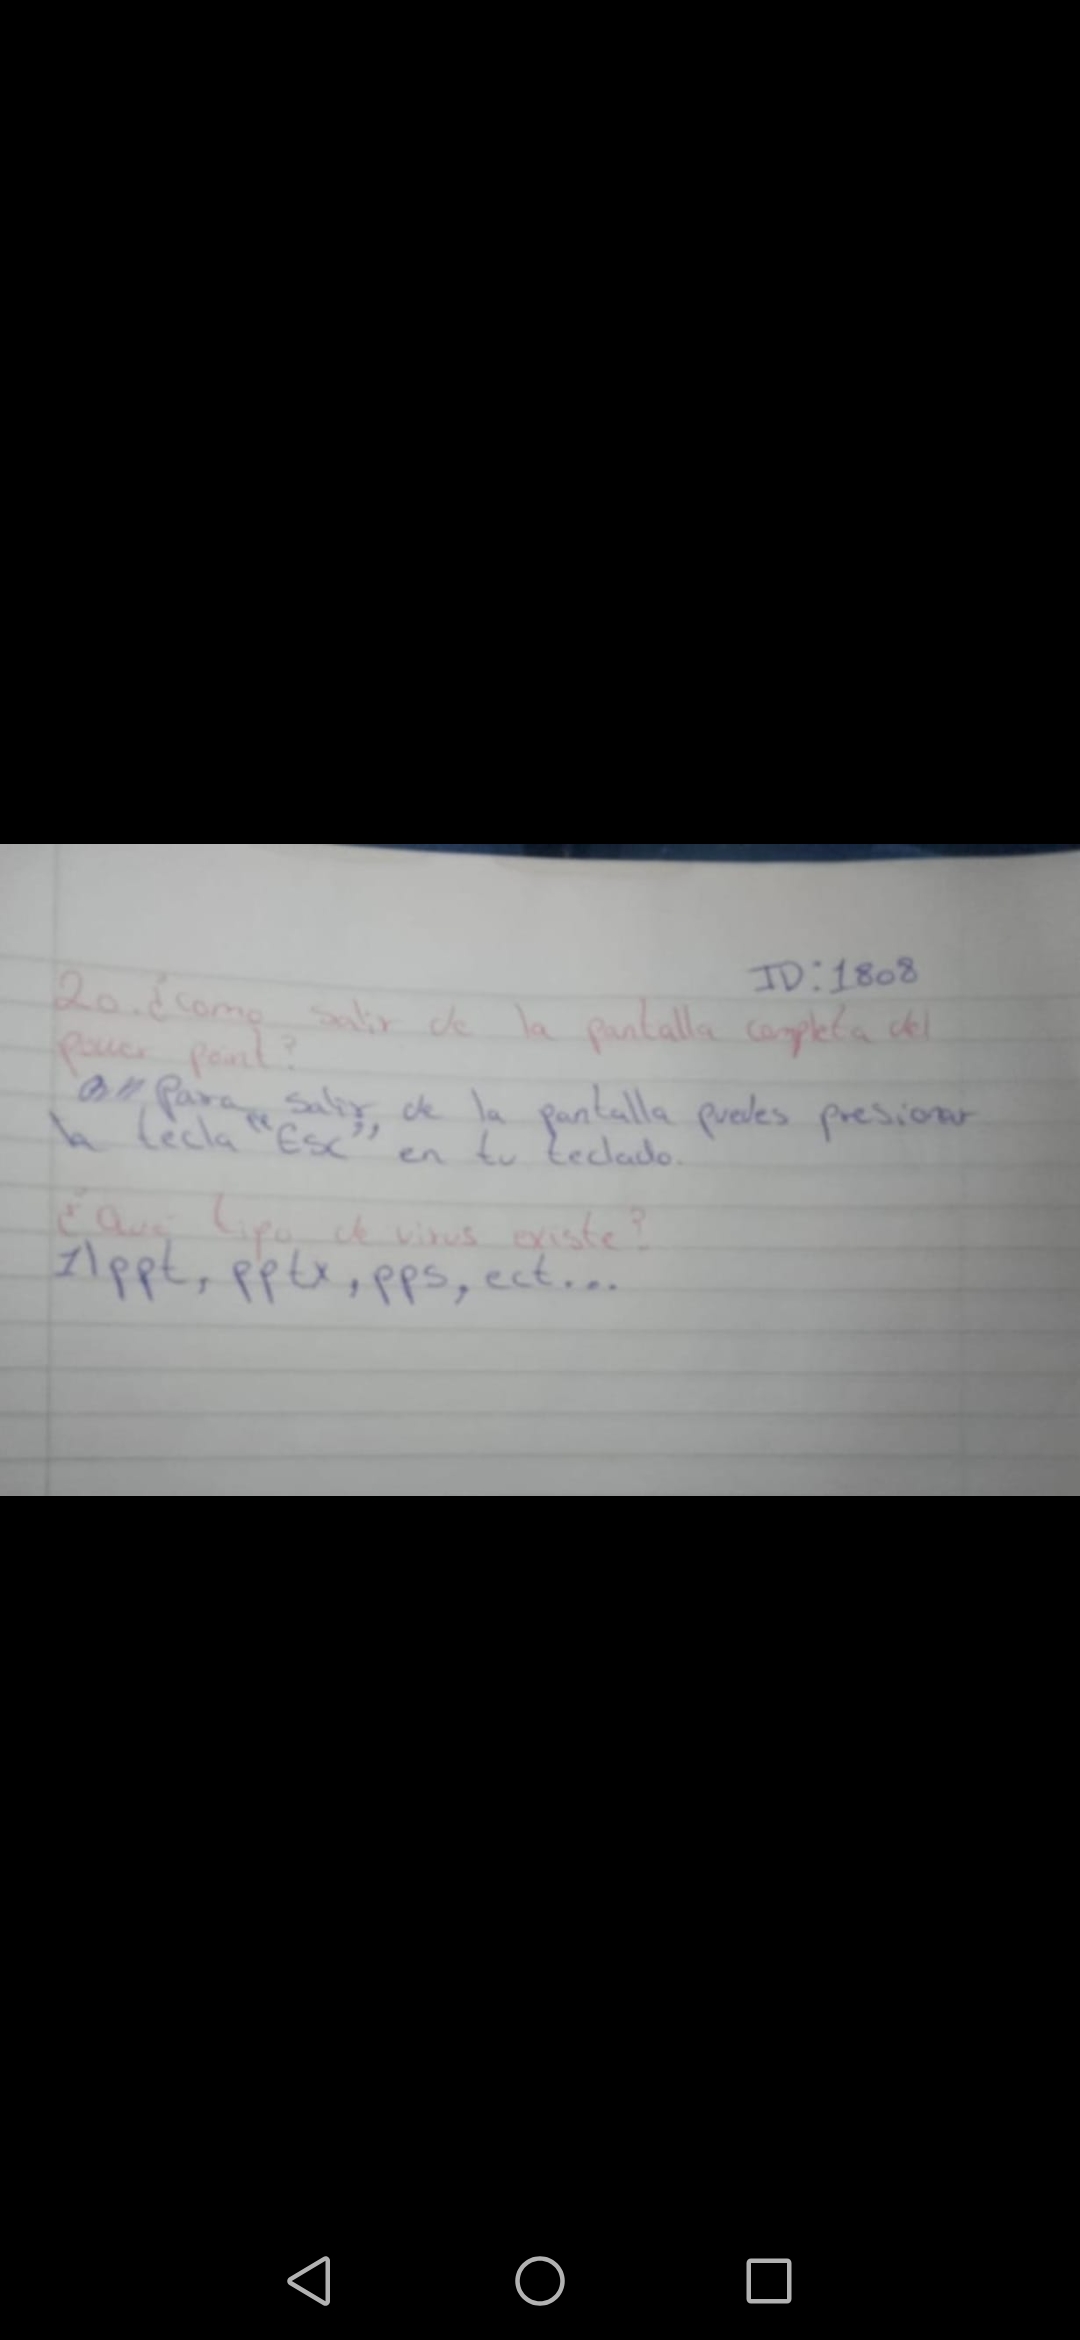 ID:1808
20.¿como salir de la pantalla completa del
power point?
R// Para salir de la pantalla puedes presionar
la tecla "Esc" en tu teclado.
¿Que tipo de virus existe?
1\ppt, pptx, pps, ect...